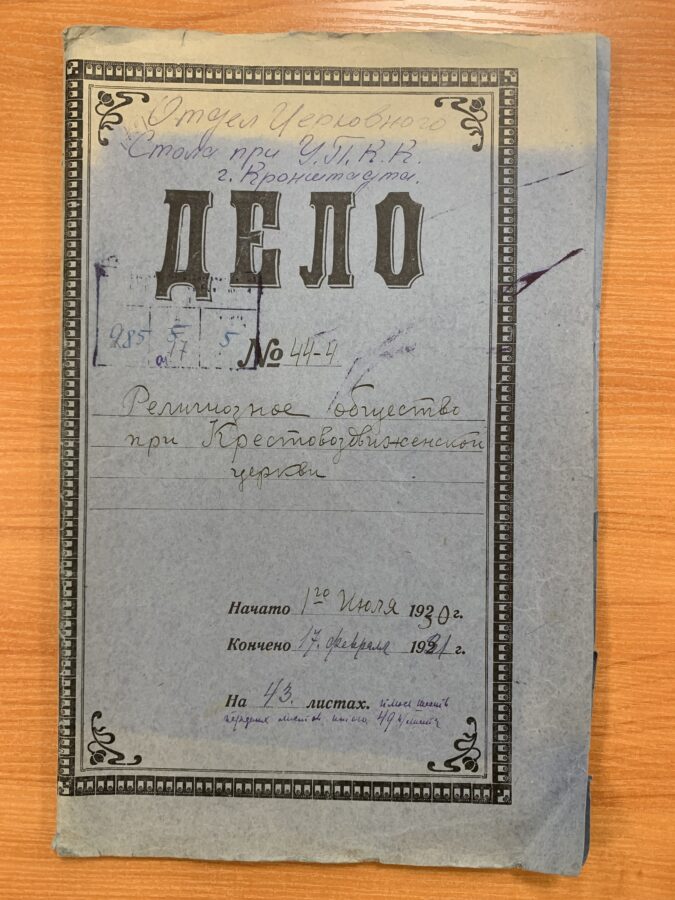 Отдел Церковного
Стола при У.П.К.К.
г. Кронштадта.
ДЕЛО
285 5 5
17
№ 44-4
Религиозное общество
при Крестовоздвиженской
церкви
Начато 1го Июля 1930 г.
Кончено 17. февраля 1931 г.
На 43. листах. плюс шесть
листов, итого 49